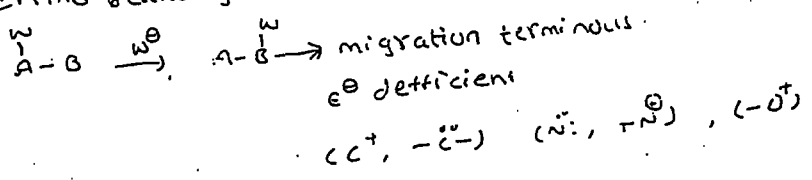 W W
A - B W⊖ → A - B → migration terminous.
e⊖ defficient
(C⁺, -C̈-) (N̈:, -N⊕), (-O⁺)